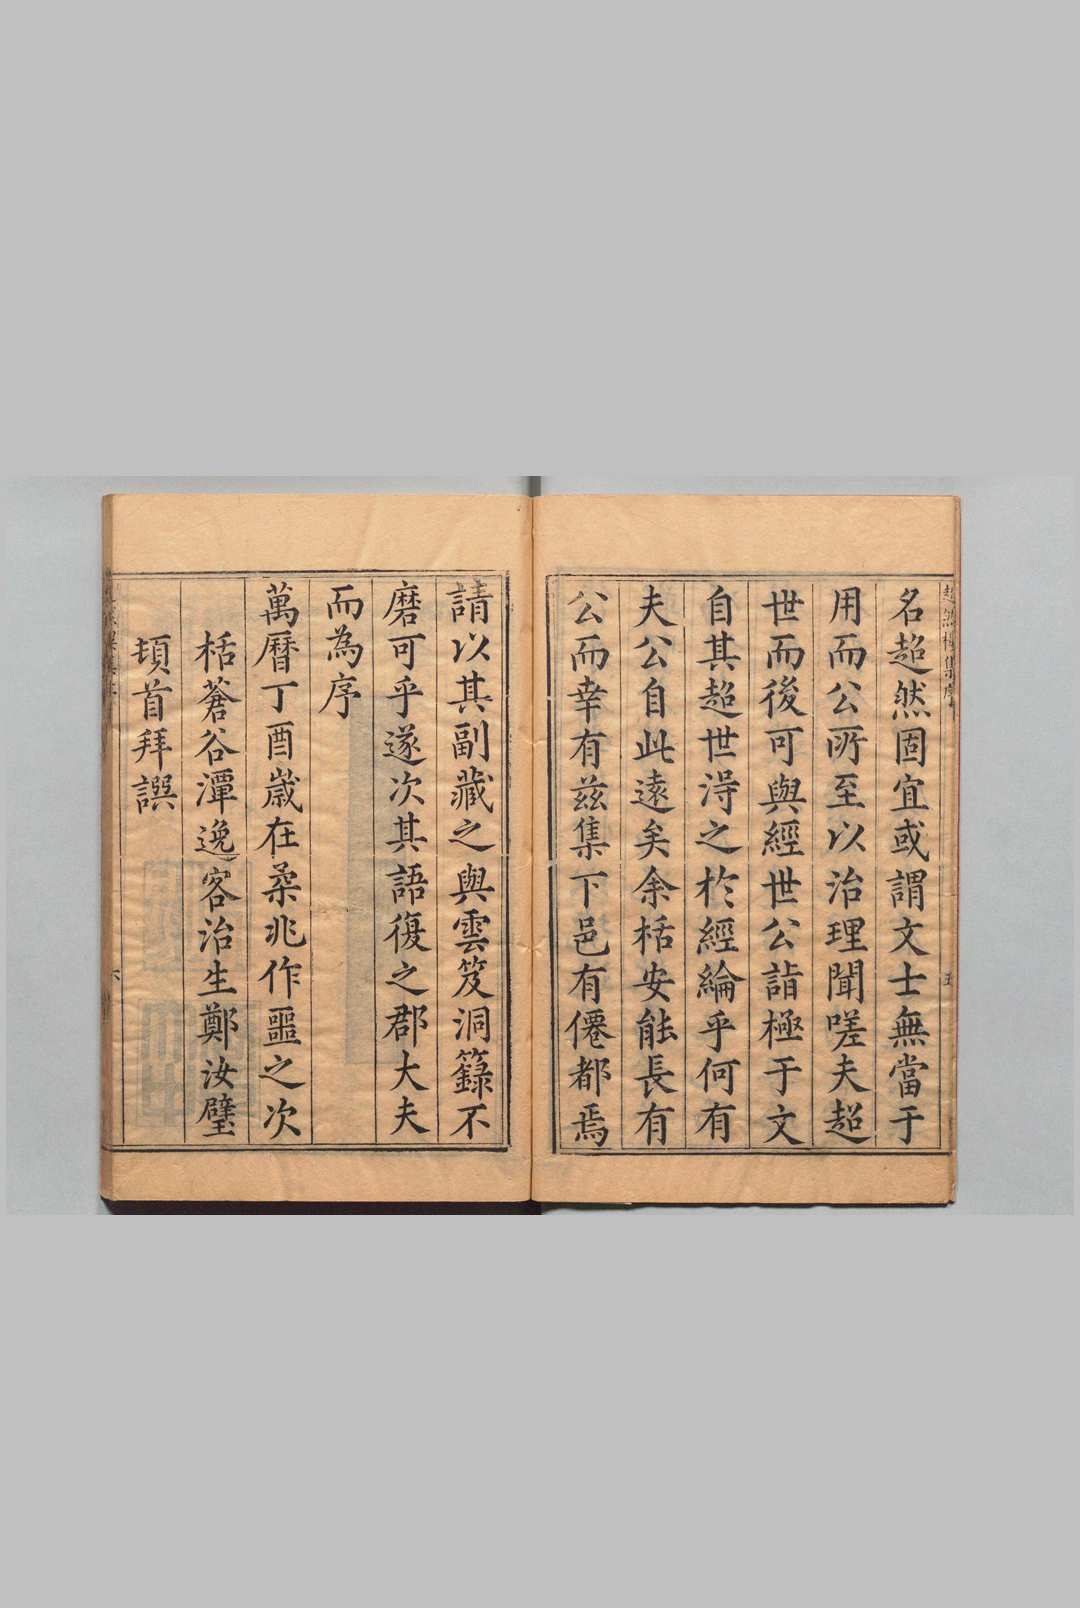 名超然固宜或謂文士無當于
用而公所至以治理聞嗟夫超
世而後可與經世公詣極于文
自其超世淂之於經綸乎何有
夫公自此遠矣余栝安能長有
公而幸有兹集下邑有僊都焉
請以其副藏之與雲笈洞籙不
磨可乎遂次其語復之郡大夫
而為序
萬曆丁酉歲在柔兆作噩之次
栝蒼谷潭逸客治生鄭汝璧
頓首拜譔
五
六